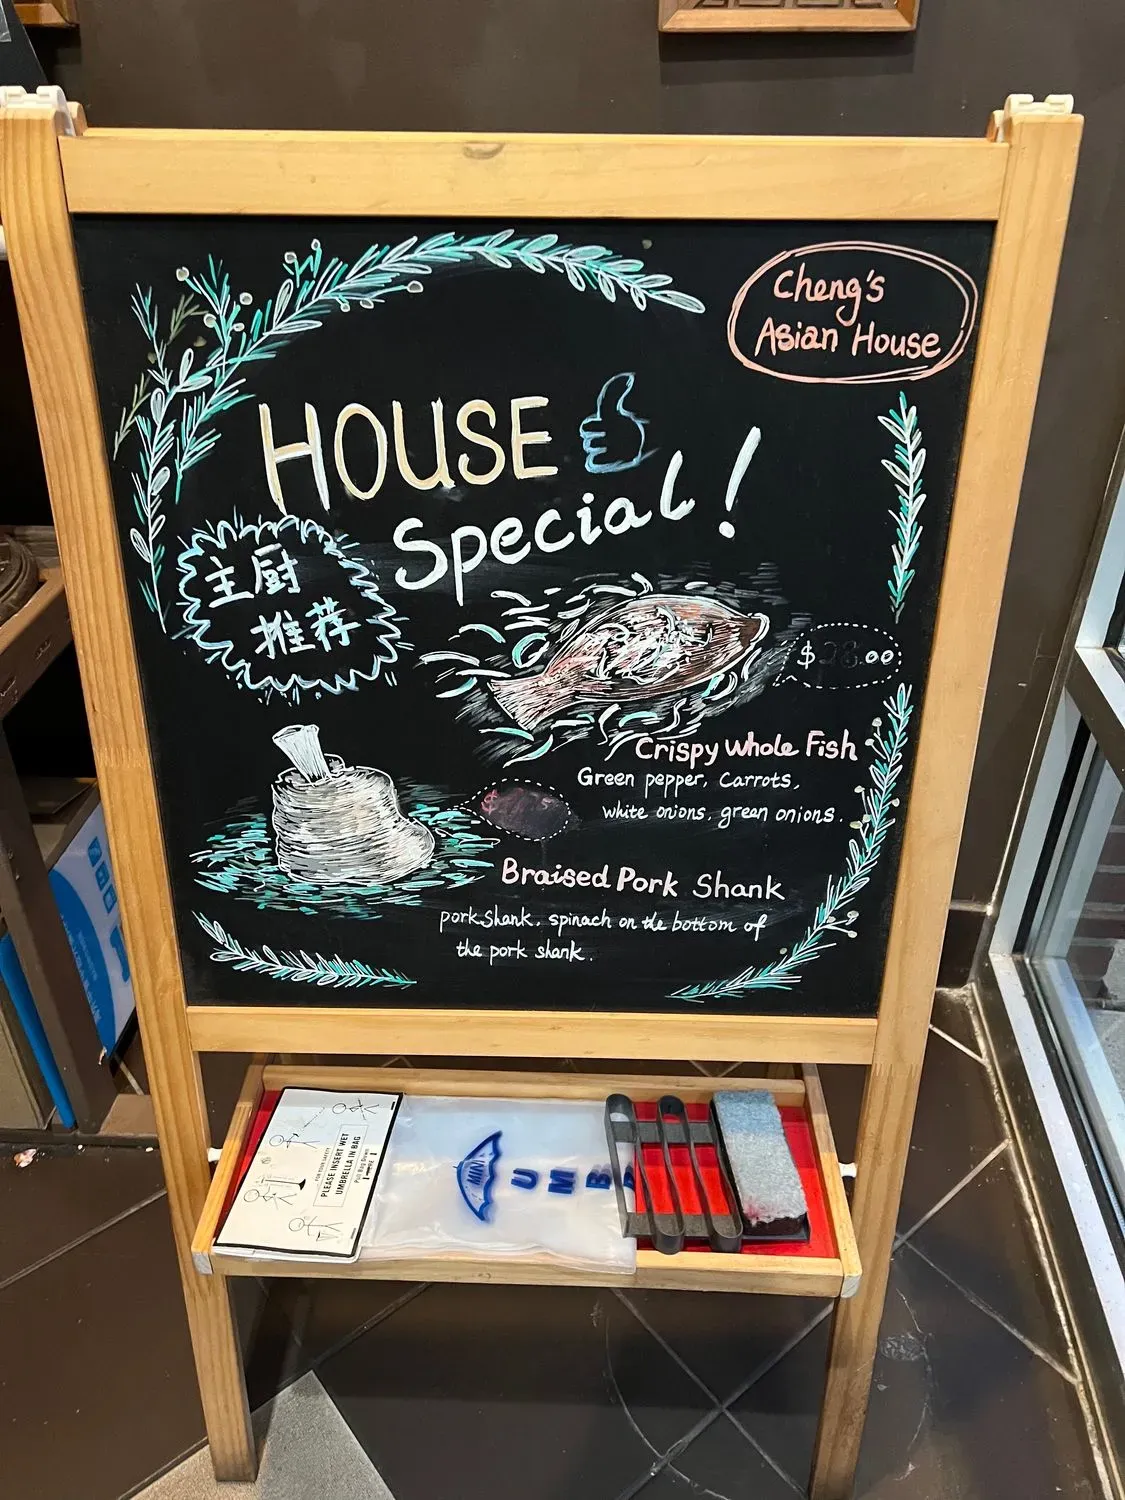 Cheng's
Asian House
HOUSE
Special!
主厨
推荐
$ .00
Crispy Whole Fish
Green pepper, Carrots,
white onions, green onions.
$
Braised Pork Shank
pork shank, spinach on the bottom of
the pork shank.
FOR YOUR SAFETY
PLEASE INSERT WET
UMBRELLA IN BAG
Pull Bag Down
MINI
UMB